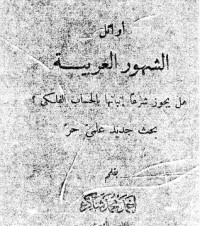 أوائل
الشهور العربية
هل يجوز شرعا إثباتها بالحساب الفلكي ؟
بحث جديد علمي حر
بقلم
أحمد محمد شاكر